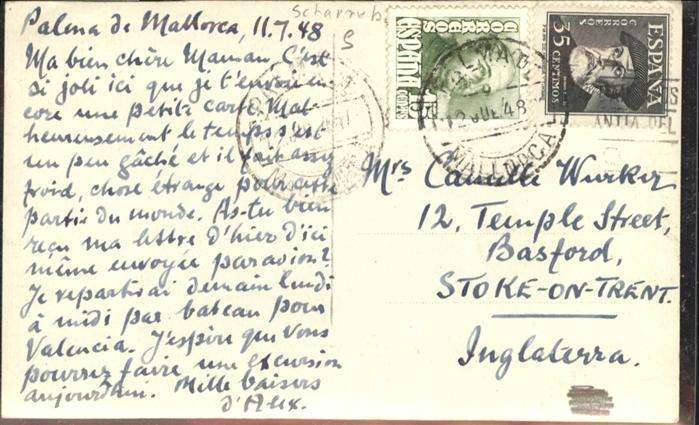 Palma de Mallorca, 11.7.48
Ma bien chère Maman. C'est
si joli ici que je t'envoie en
core une petite carte. Mal-
heureusement le temps s'est
un peu gâché et il fait assez
froid, chose étrange pour cette
partie du monde. As-tu bien
reçu ma lettre d'hier d'ici
même envoyée par avion?
Je repartirai demain lundi
à midi par bateau pour
Valencia. J'espère que vous
pourrez faire une excursion
aujourdhui. Mille baisers
d'Alex.
S
CORREOS
ESPAÑA
CORREOS
35 CENTIMOS
ESPAÑA
12 JUL 48
MALLORCA
Mrs Camille Wurker
12, Temple Street,
Basford,
STOKE-ON-TRENT.
Inglaterra.